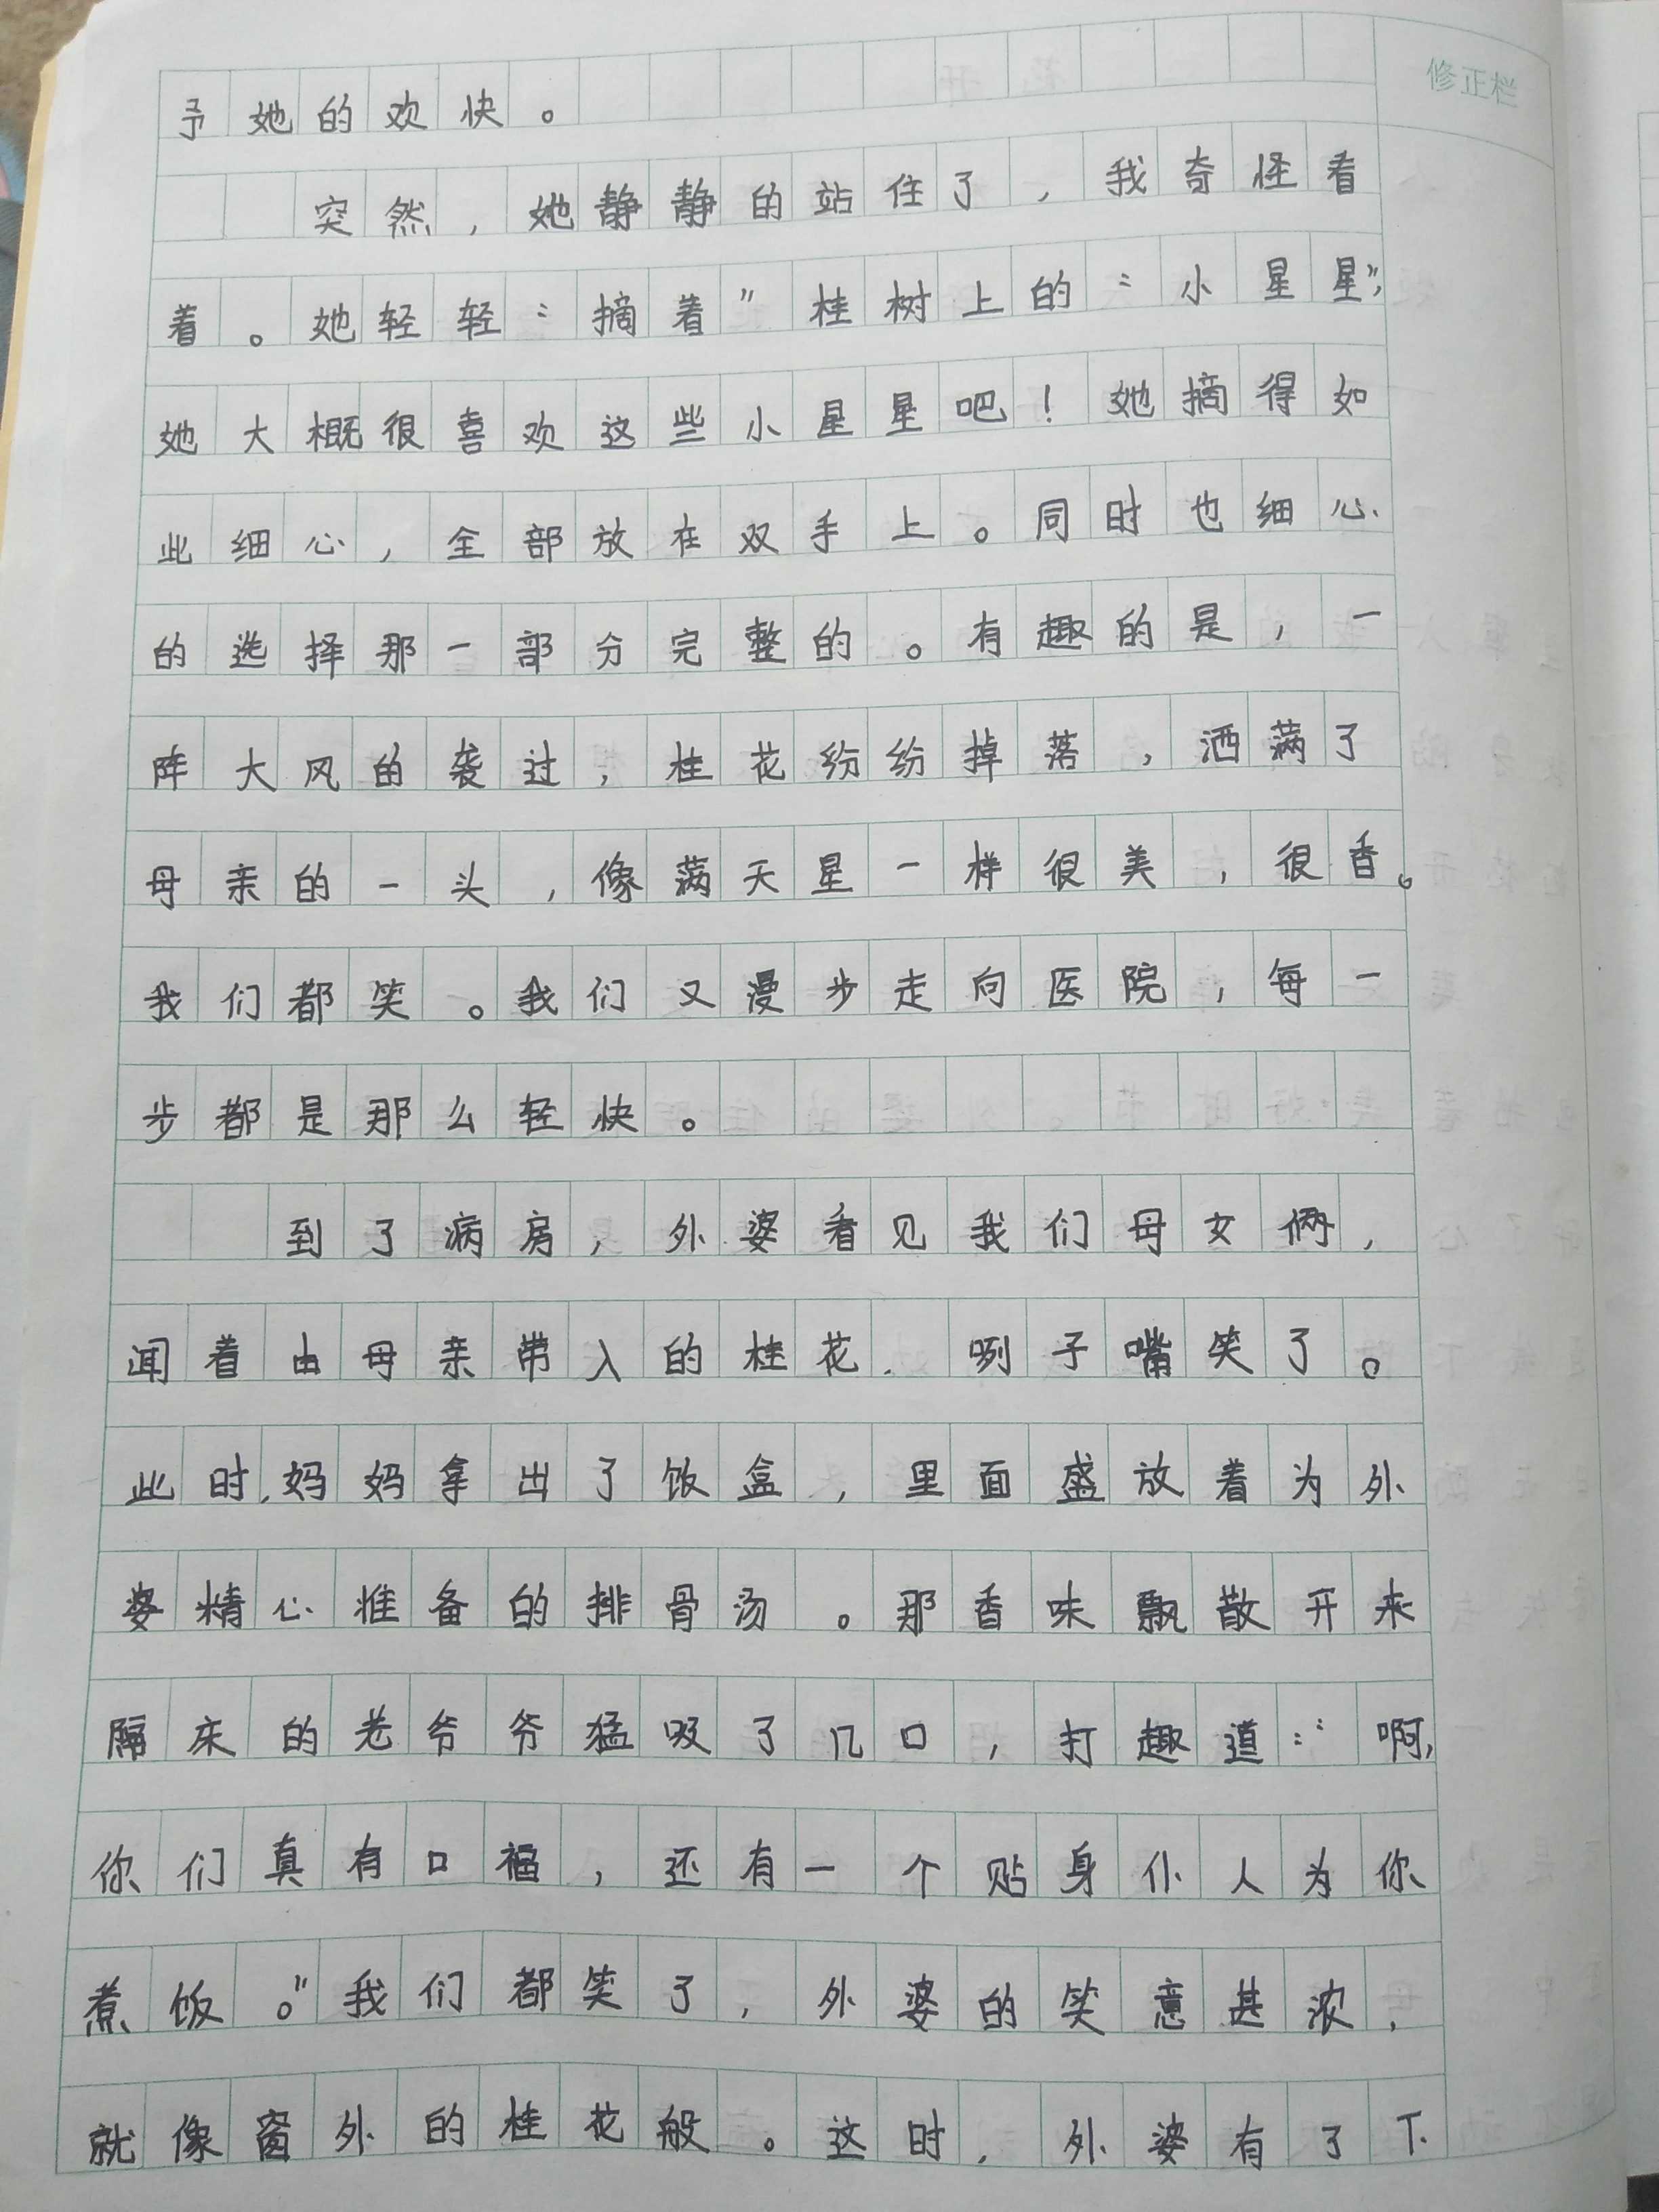 修正栏
予她的欢快。
突然，她静静的站住了，我奇怪看
着。她轻轻“摘着”桂树上的“小星星”，
她大概很喜欢这些小星星吧！她摘得如
此细心，全部放在双手上。同时也细心
的选择那一部分完整的。有趣的是，一
阵大风的袭过，桂花纷纷掉落，洒满了
母亲的一头，像满天星一样很美，很香。
我们都笑。我们又漫步走向医院，每一
步都是那么轻快。
到了病房，外婆看见我们母女俩，
闻着由母亲带入的桂花，咧子嘴笑了。
此时，妈妈拿出了饭盒，里面盛放着为外
婆精心准备的排骨汤。那香味飘散开来
隔床的老爷爷猛吸了几口，打趣道：“啊，
你们真有口福，还有一个贴身仆人为你
煮饭。”我们都笑了，外婆的笑意甚浓，
就像窗外的桂花般。这时，外婆有了下